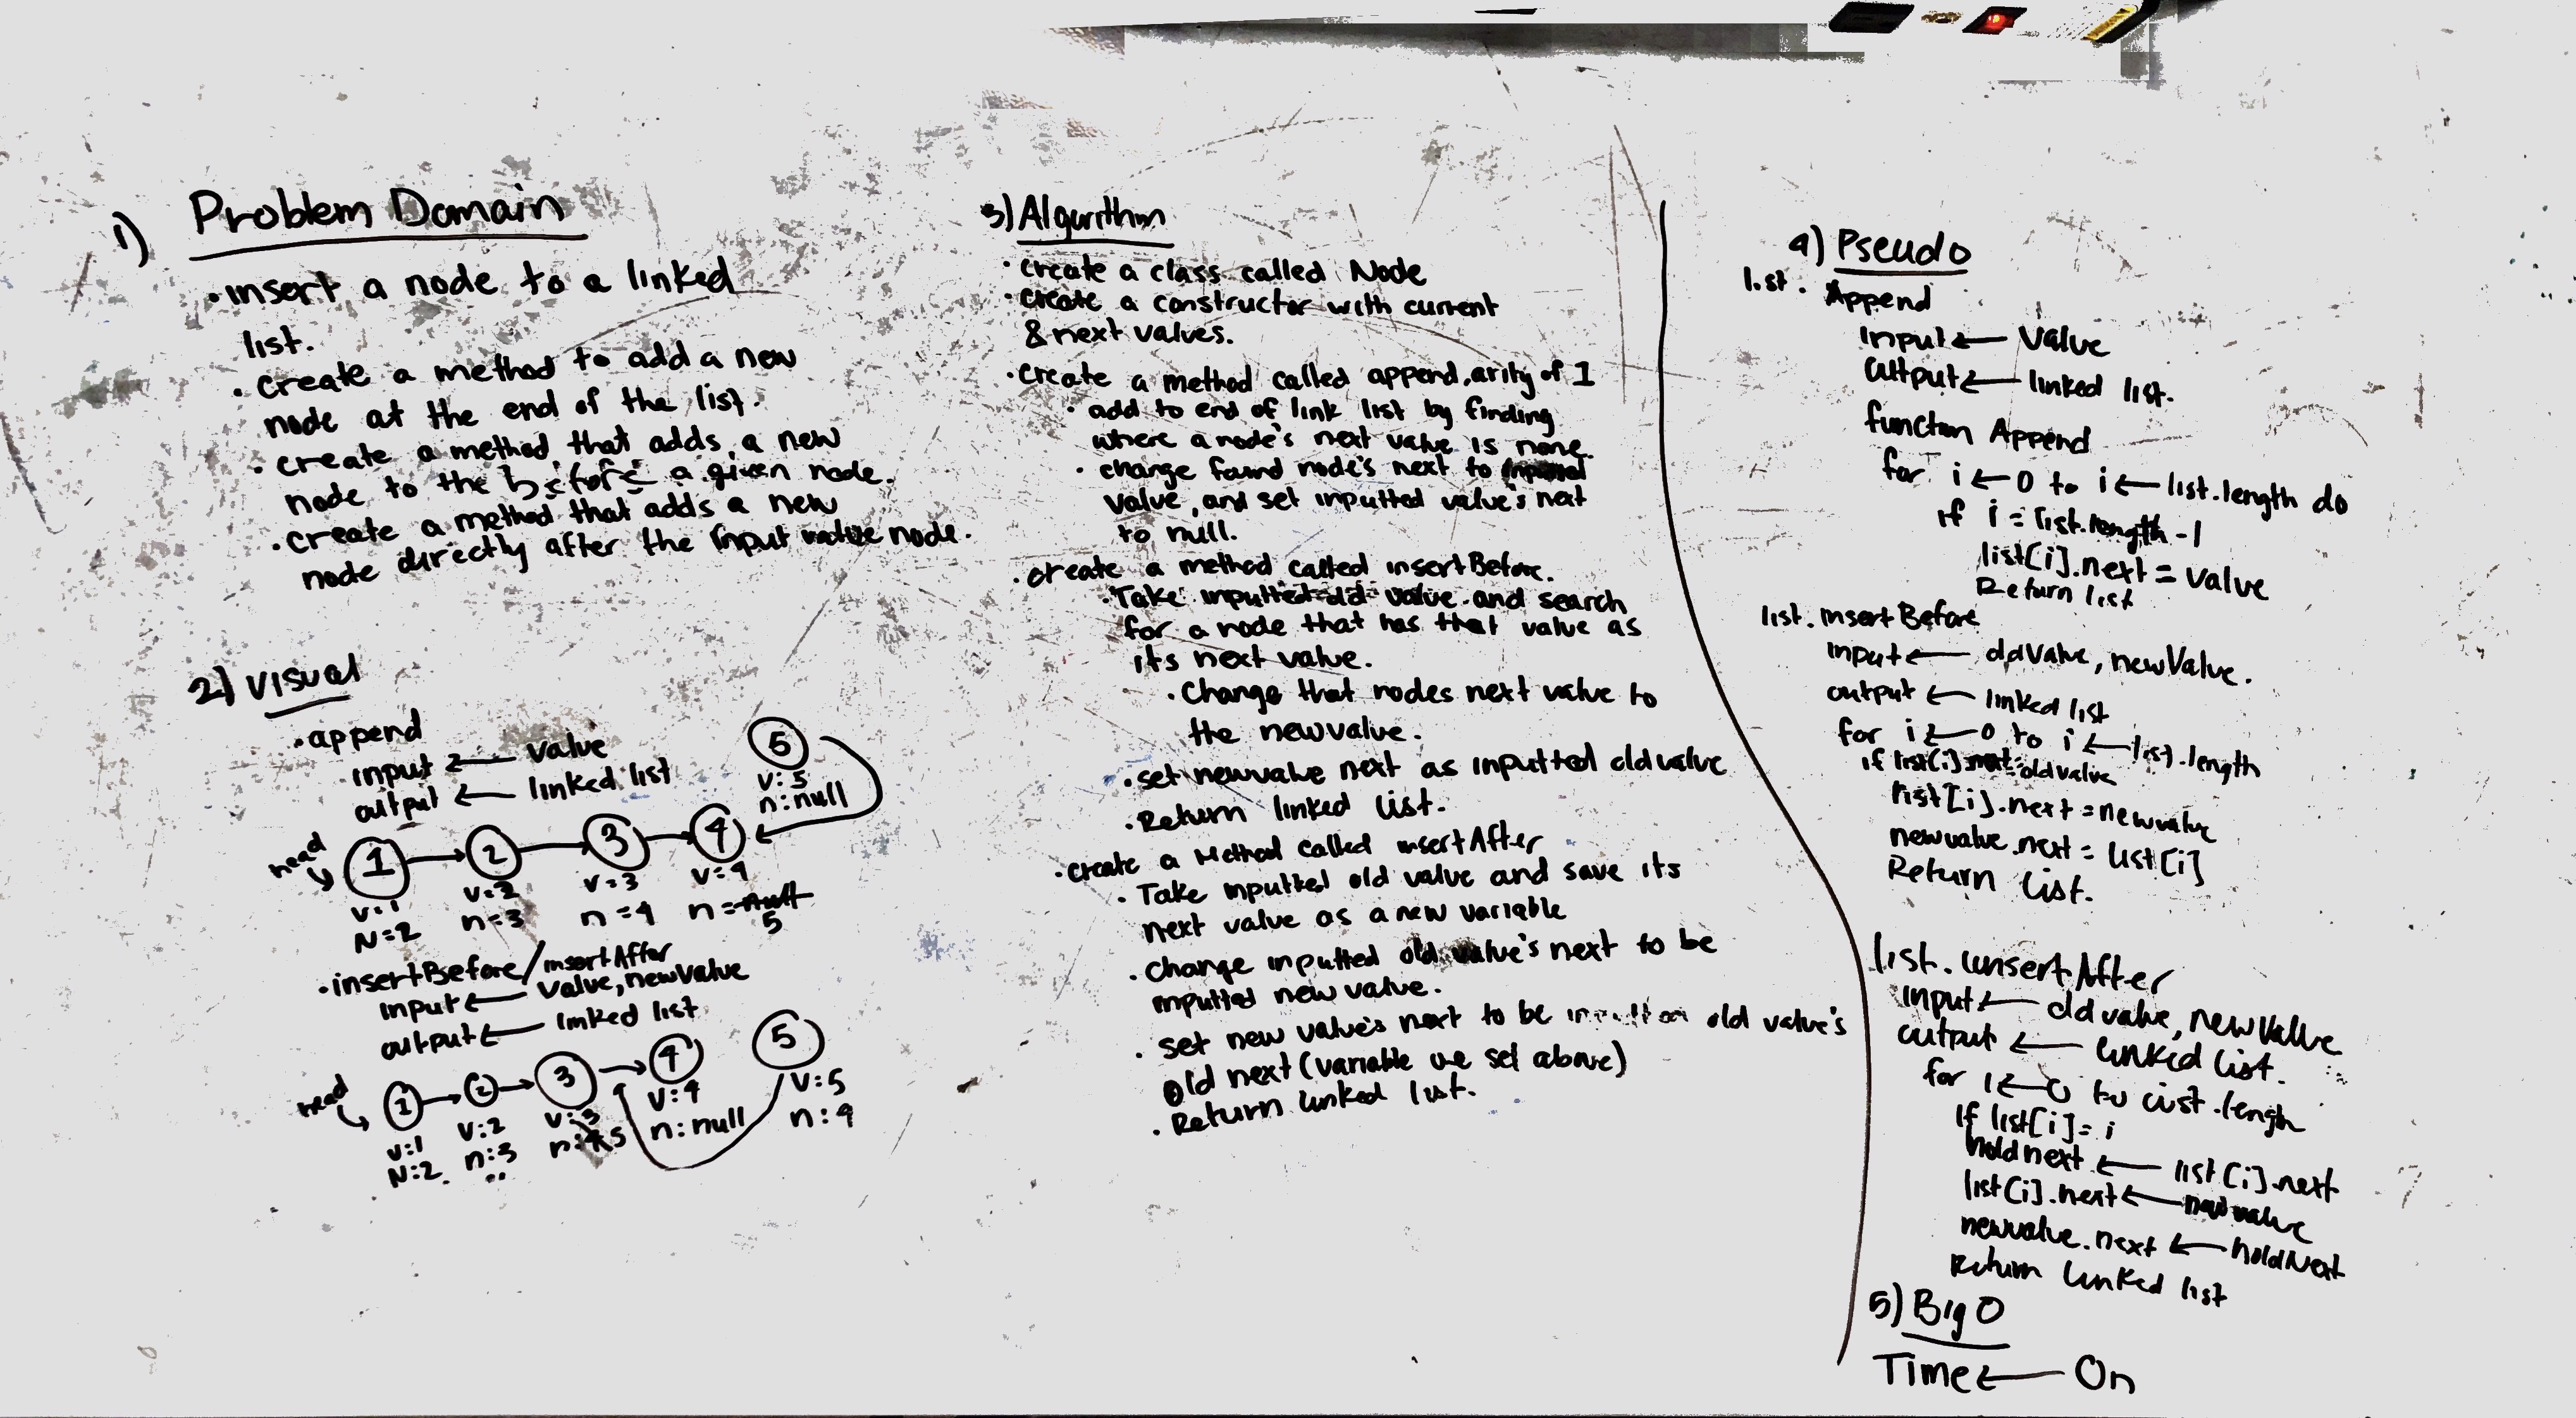 1) Problem Domain
• insert a node to a linked
list.
• create a method to add a new
node at the end of the list.
• create a method that adds a new
node to the before a given node.
• create a method that adds a new
node directly after the input value node.
2) Visual
• append
input ← value
output ← linked list
5
v:5
n:null
head
1 → 2 → 3 → 4
v:1 v:2 v:3 v:4
N=2 n=3 n=4 n=null
5
• insertBefore/insertAfter
input ← value, newValue
output ← linked list
head
1 → 2 → 3 → 4 5
v:1 v:2 v:3 v:4 v:5
N:2 n:3 n:4 5 n:null n:4
3) Algorithm
• create a class called Node
• create a constructor with current
& next values.
• create a method called append, arity of 1
• add to end of link list by finding
where a node's next value is none.
• change found node's next to
value, and set inputted value's next
to null.
• create a method called insertBefore.
• Take inputted old value and search
for a node that has that value as
its next value.
• Change that nodes next value to
the newvalue.
• set newvalue next as inputted old value
• Return linked list.
• create a Method called insertAfter
• Take inputted old value and save its
next value as a new variable
• change inputted old value's next to be
inputted new value.
• set new value's next to be old value's
old next (variable we set above)
• Return linked list.
4) Pseudo
list. Append
Input ← Value
Output ← linked list.
function Append
for i ← 0 to i ← list.length do
if i = list.length -1
list[i].next = value
Return list
list. insertBefore
input ← oldValue, newValue.
output ← linked list
for i ← 0 to i ← list.length
if list[i].next = oldvalue
list[i].next = newvalue
newvalue.next = list[i]
Return list.
list. insertAfter
input ← oldvalue, newValue
output ← linked list.
for i ← 0 to list.length
If list[i] = i
holdnext ← list[i].next
list[i].next ← newvalue
newvalue.next ← holdNext
Return linked list
5) Big O
Time ← On